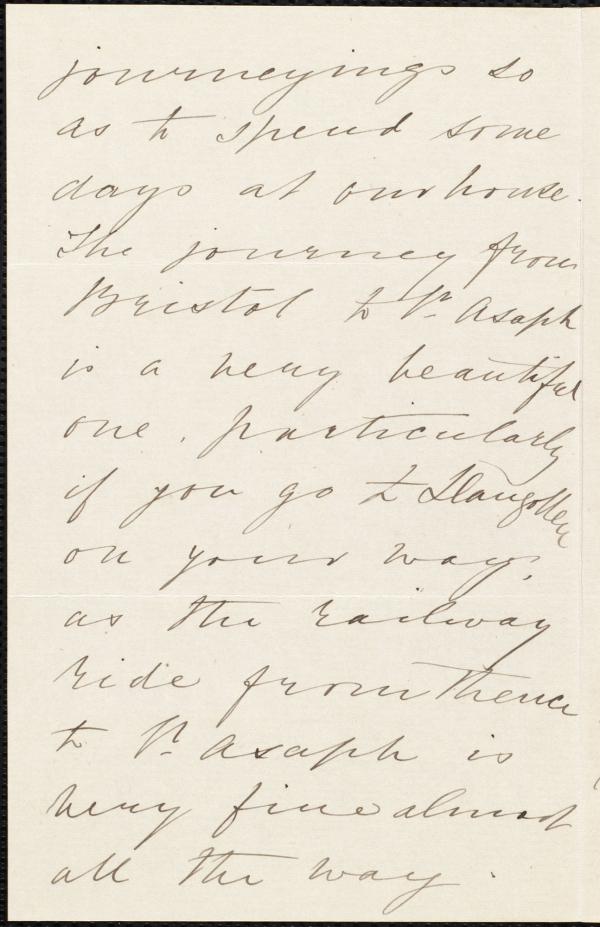 journeyings so
as to spend some
days at our house.
The journey from
Bristol to St. Asaph
is a very beautiful
one, particularly
if you go to Llangollen
on your way,
as the railway
ride from thence
to St. Asaph is
very fine almost
all the way.